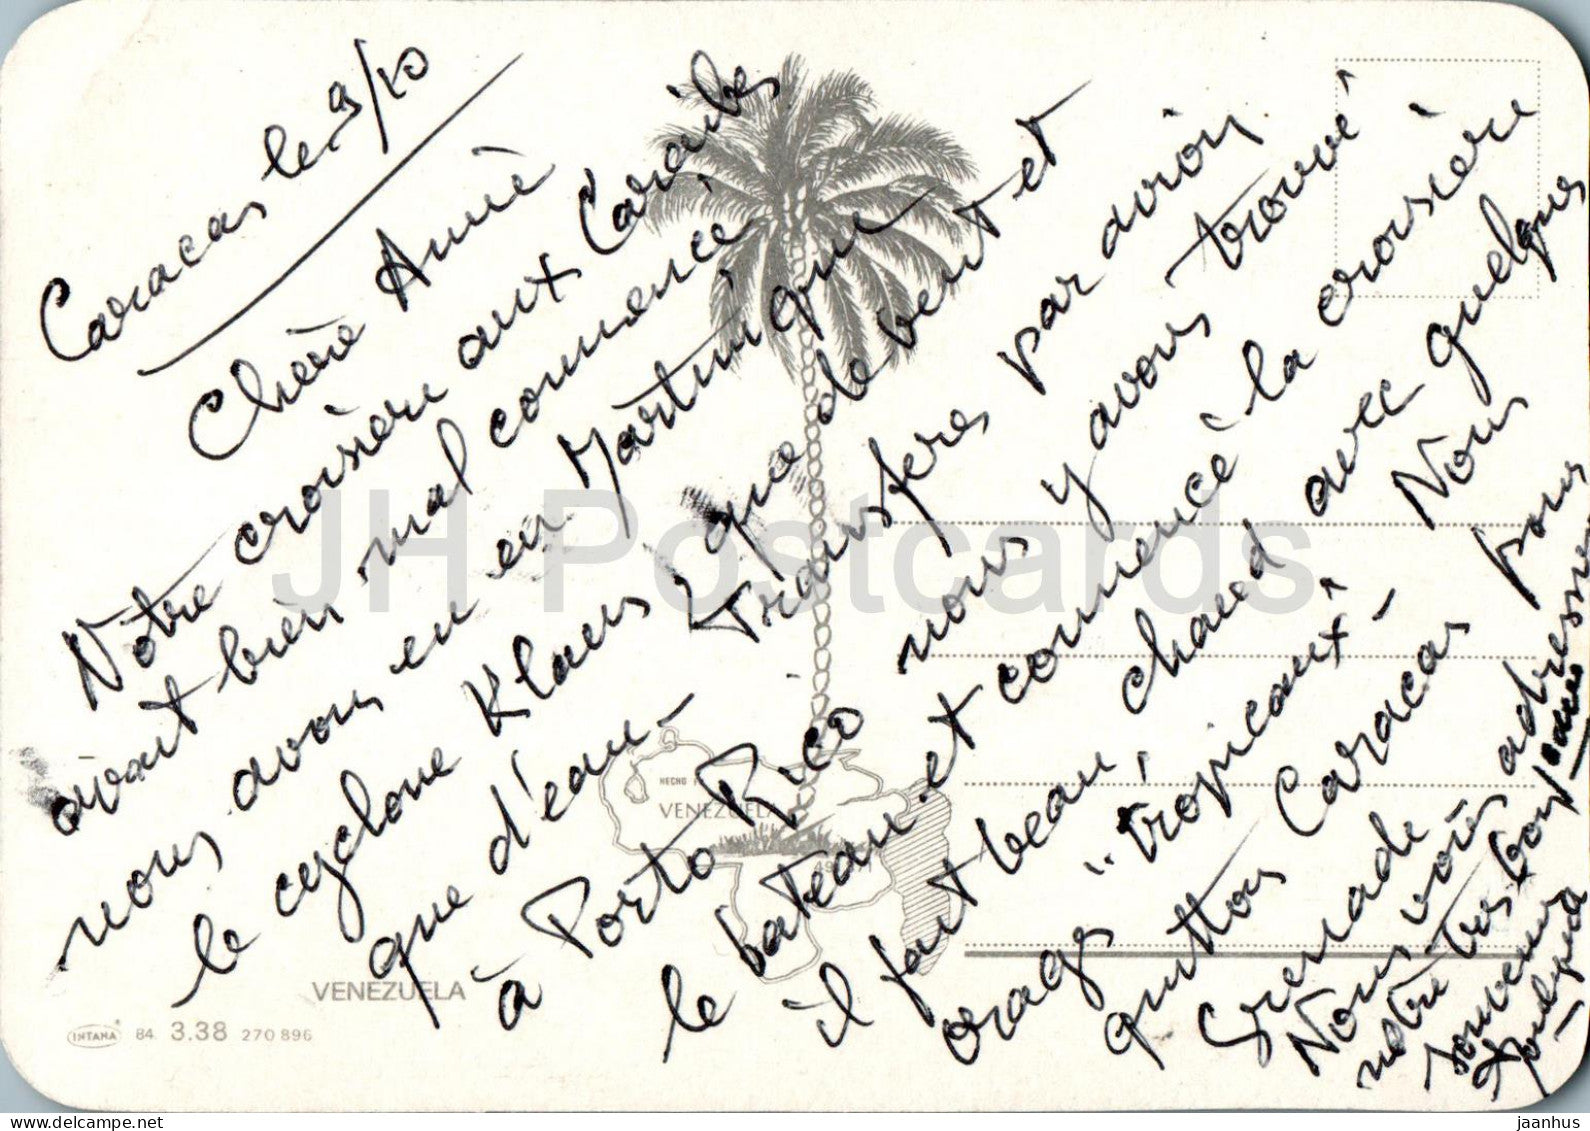 Caracas le 9/10
Chère Annie
Notre croisière aux Caraibes
ayant bien mal comencé
nous avons eu en Martinique
le cyclone Klaus que de vent et
que d'eau -
Transferes par avion
à Porto Rico nous y avons trouvé
le bateau et comencé la croisière
il fait beau, chaud avec quelques
orages "tropicaux" -
Nous
quittons Caracas pour
Grenade
Nous vous adressons
notre très bon
souvenir
JH Postcards
HECHO
VENEZUELA
VENEZUELA
INTANA 84 3.38 270 896
jaanhus